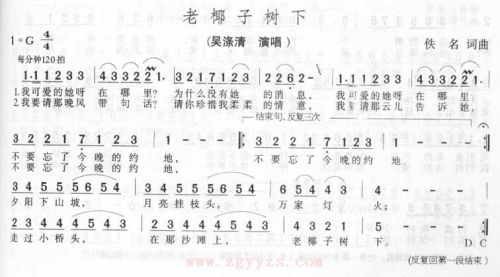 老椰子树下
1=G 4/4
(吴涤清 演唱)
佚名 词曲
每分钟120拍
1·1 1 2 3 3 | 4 3 3 2 2 1 | 3 2 1 7 1 2 3 | 2 2 6 2 - | 1·1 1 2 3 3 | 4 3 3 2 2 1 |
1.我可爱的她呀 在哪里? 为什么没有她 的消息, 我可爱的她呀 在哪里?
2.我要请那晚风 带句话? 请你珍惜我柔柔 的情意, 我要请那云儿 告诉她,
结束句,反复三次
3 2 2 1 7 1 2 3 | 1 - - 0 :‖ 3 2 2 1 7 1 2 3 | 1 - - 0 :‖
不要忘了今晚的约 地, 不要忘了今晚的约 地
不要忘了今晚的约 地。
3 4 5 5 5 6 5 4 | 3 4 5 5 5 6 5 4 | 3 4 5 6 5 4 3 1 | 5 - - - |
夕阳下山坡, 月亮挂枝头, 万家灯 火;
2 3 4 4 4 5 4 3 | 2 3 4 4 4 5 4 3 | 2 3 4 5 4 3 2 1 | 5 - - D.C
走过小桥头, 在那沙滩上, 老椰子树 下。
(反复回第一段结束)
www.zgyyzs.com